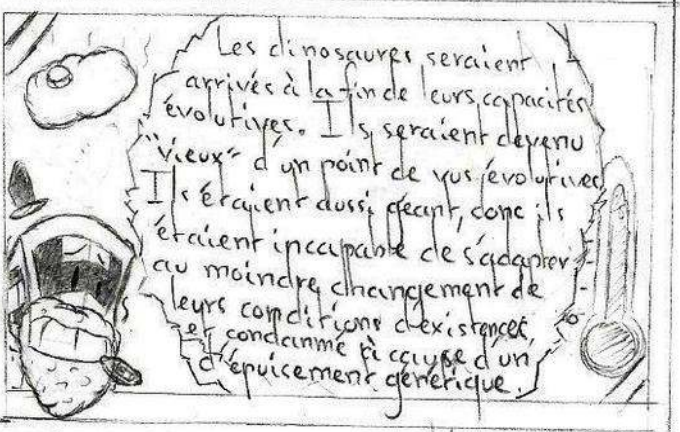 Les dinosaures seraient
arrivés à la fin de leurs capacités
évolutives. Ils seraient devenu
"vieux" d'un point de vus évolutives
Ils étaient aussi géant, donc ils
étaient incapable de s'adapter
au moindre changement de
leurs conditions d'existences
et condamné à cause d'un
d'épuicement génétique.